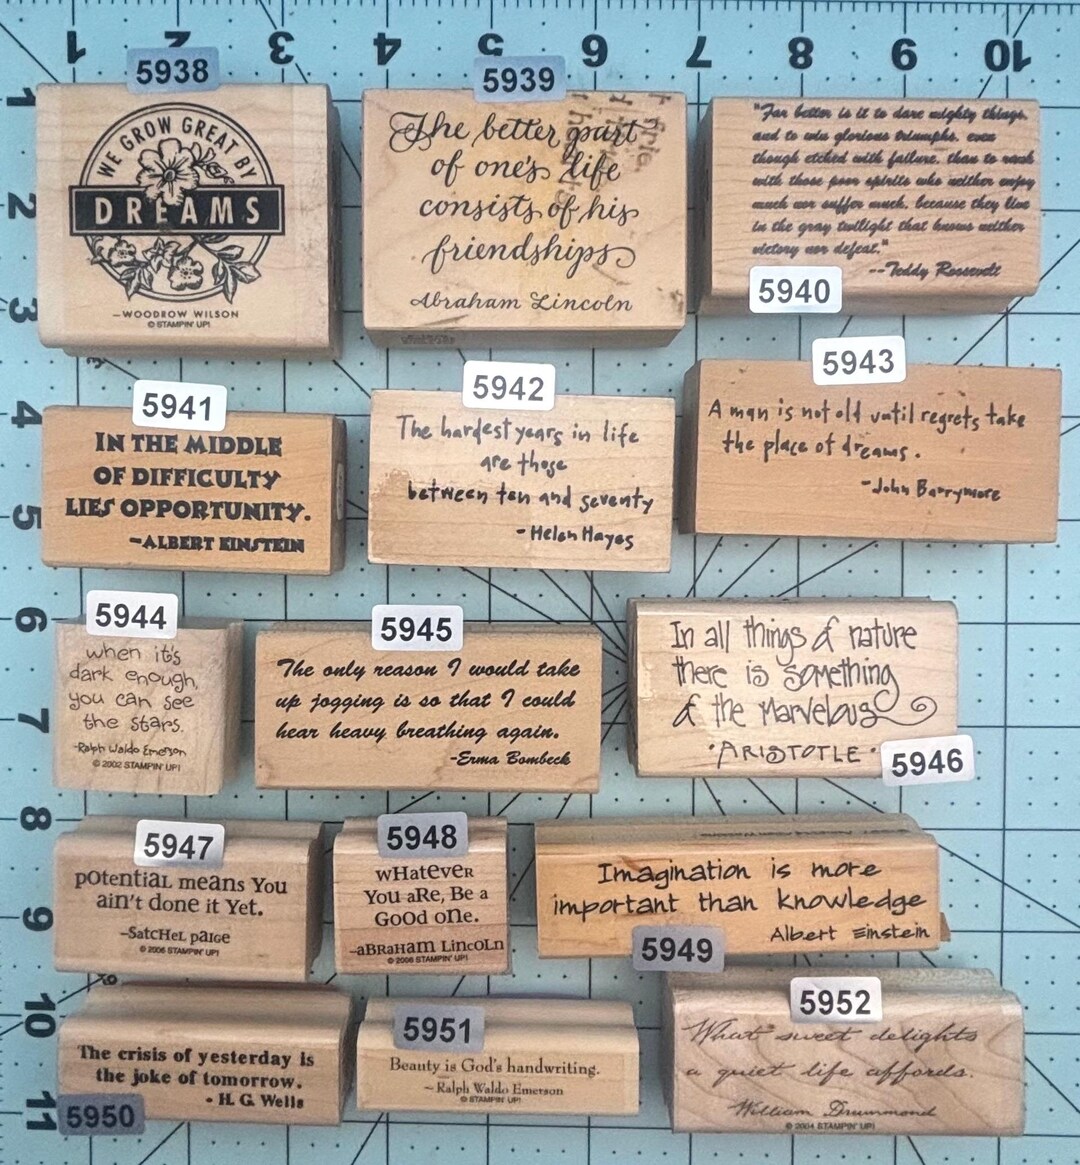 1 2 3 4 5 6 7 8 9 10
5938
WE GROW GREAT BY
DREAMS
—WOODROW WILSON
© STAMPIN' UP!
5939
The better part
of one's life
consists of his
friendships
Abraham Lincoln
"Far better is it to dare mighty things,
and to win glorious triumphs, even
though etched with failure, than to rank
with those poor spirits who neither enjoy
much nor suffer much, because they live
in the gray twilight that knows neither
victory nor defeat."
--Teddy Roosevelt
5940
1
2
3
5941
IN THE MIDDLE
OF DIFFICULTY
LIES OPPORTUNITY.
~ALBERT EINSTEIN
5942
The hardest years in life
are those
between ten and seventy
- Helen Hayes
5943
A man is not old until regrets take
the place of dreams.
-John Barrymore
4
5
5944
when it's
dark enough,
you can see
the stars.
-Ralph Waldo Emerson
© 2002 STAMPIN' UP!
5945
The only reason I would take
up jogging is so that I could
hear heavy breathing again.
-Erma Bombeck
In all things of nature
there is something
of the marvelous
•ARISTOTLE•
5946
6
7
5947
potential means You
ain't done it Yet.
-Satchel paige
© 2006 STAMPIN' UP!
5948
wHatever
You aRe, Be a
GoOd one.
-aBRaHam LincoLn
© 2006 STAMPIN' UP!
Imagination is more
important than knowledge
Albert Einstein
5949
8
9
The crisis of yesterday is
the joke of tomorrow.
- H. G. Wells
5950
5951
Beauty is God's handwriting.
~ Ralph Waldo Emerson
© STAMPIN' UP!
5952
What sweet delights
a quiet life affords.
William Drummond
© 2004 STAMPIN' UP!
10
11